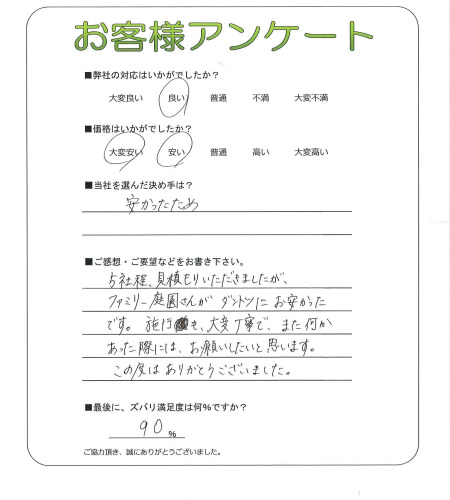 お客様アンケート
■弊社の対応はいかがでしたか?
大変良い 良い 普通 不満 大変不満
■価格はいかがでしたか?
大変安い 安い 普通 高い 大変高い
■当社を選んだ決め手は?
安かったため
■ご感想・ご要望などをお書き下さい。
5社程、見積もりいただきましたが、
ファミリー庭園さんが ダントツにお安かった
です。施行も、大変丁寧で、また何か
あった際には、お願いしたいと思います。
この度はありがとうございました。
■最後に、ズバリ満足度は何%ですか?
90 %
ご協力頂き、誠にありがとうございました。